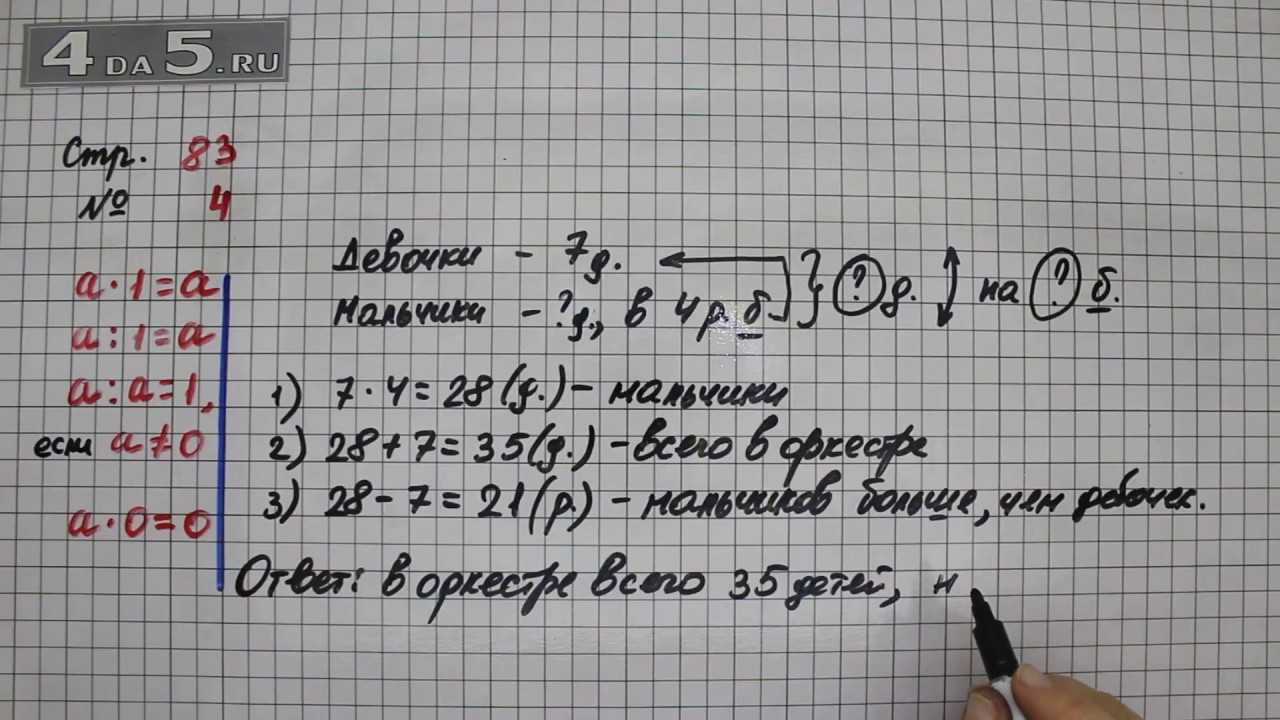 4DA5.RU
Стр. 83
№ 4
a · 1 = a
a : 1 = a
a : a = 1,
если a ≠ 0
a · 0 = 0
Девочки - 7 д.
Мальчики - ? д., в 4 р. б. } ? д. ↕ на ? б.
1) 7 · 4 = 28 (д.) - мальчики
2) 28 + 7 = 35 (д.) - всего в оркестре
3) 28 - 7 = 21 (р.) - мальчиков больше, чем девочек.
Ответ: в оркестре всего 35 детей, н